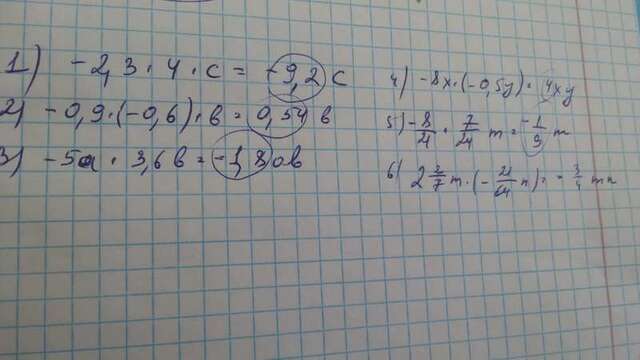 1) -2,3 · 4 · c = -9,2 c
2) -0,9 · (-0,6) · в = 0,54 в
3) -5a · 3,6 в = -1,8 ав
4) -8x · (-0,5y) = 4xy
5) -8/21 · 7/24 m = -1/9 m
6) 2 2/7 m · (-21/64 n) = -3/4 mn